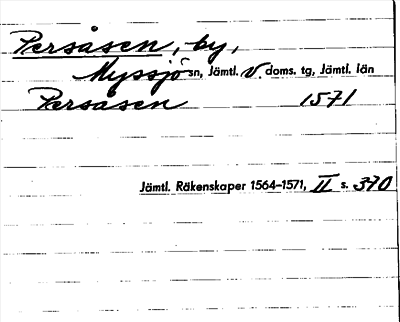 Persåsen, by,
Myssjö sn, Jämtl. V. doms. tg, Jämtl. län
Persåsen 1571
Jämtl. Räkenskaper 1564–1571, II s. 370